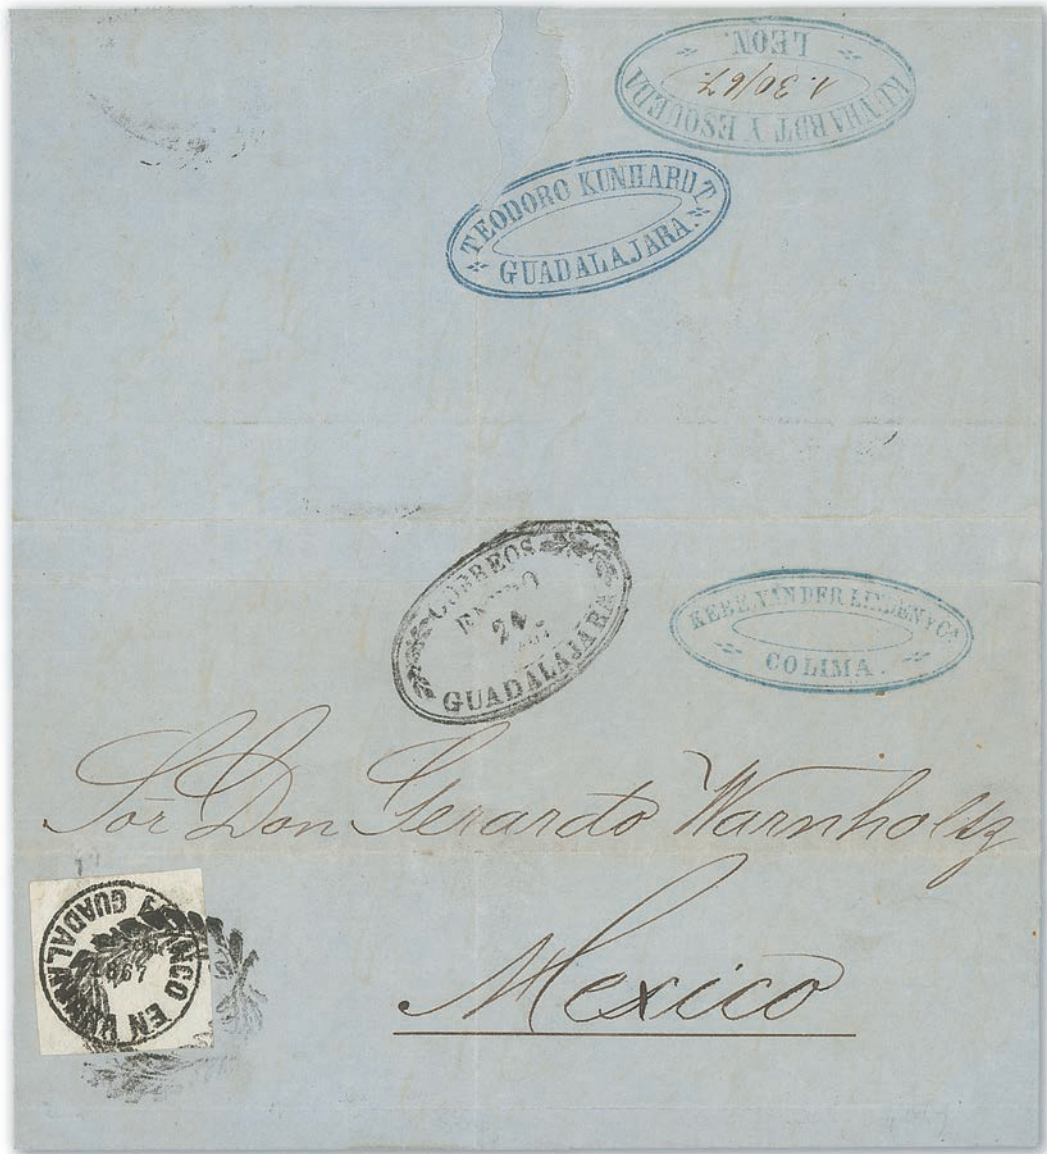 KUNHARDT Y ESQUEDA
1.30/67.
LEON.
TEODORO KUNHARDT.
GUADALAJARA.
CORREOS
ENERO
24
GUADALAJARA
KEBE, VAN DER LINDEN Y Cᴬ
COLIMA.
Sor Don Gerardo Warnholtz
FRANCO EN GUADAL
1867
Mexico